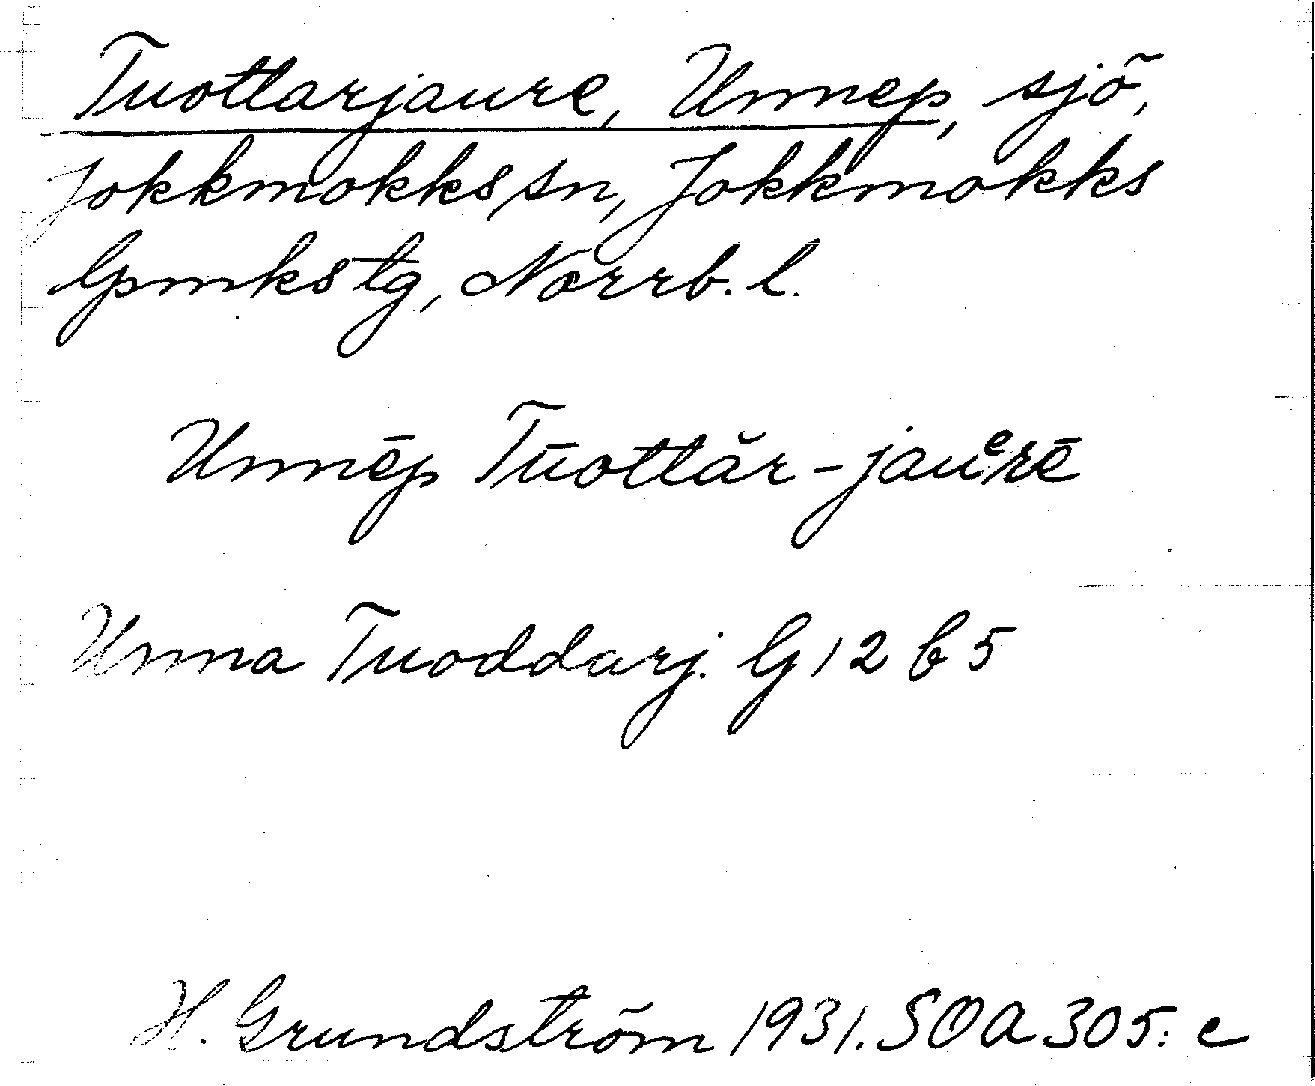 Tuottarjaure, Unnep, sjö,
Jokkmokks sn, Jokkmokks
lpmkstg, Norrb. l.
Unnēp Tūottăr-jauᵉrē
Unna Tuoddarj. G 12 b 5
H. Grundström 1931. SOA 305: c